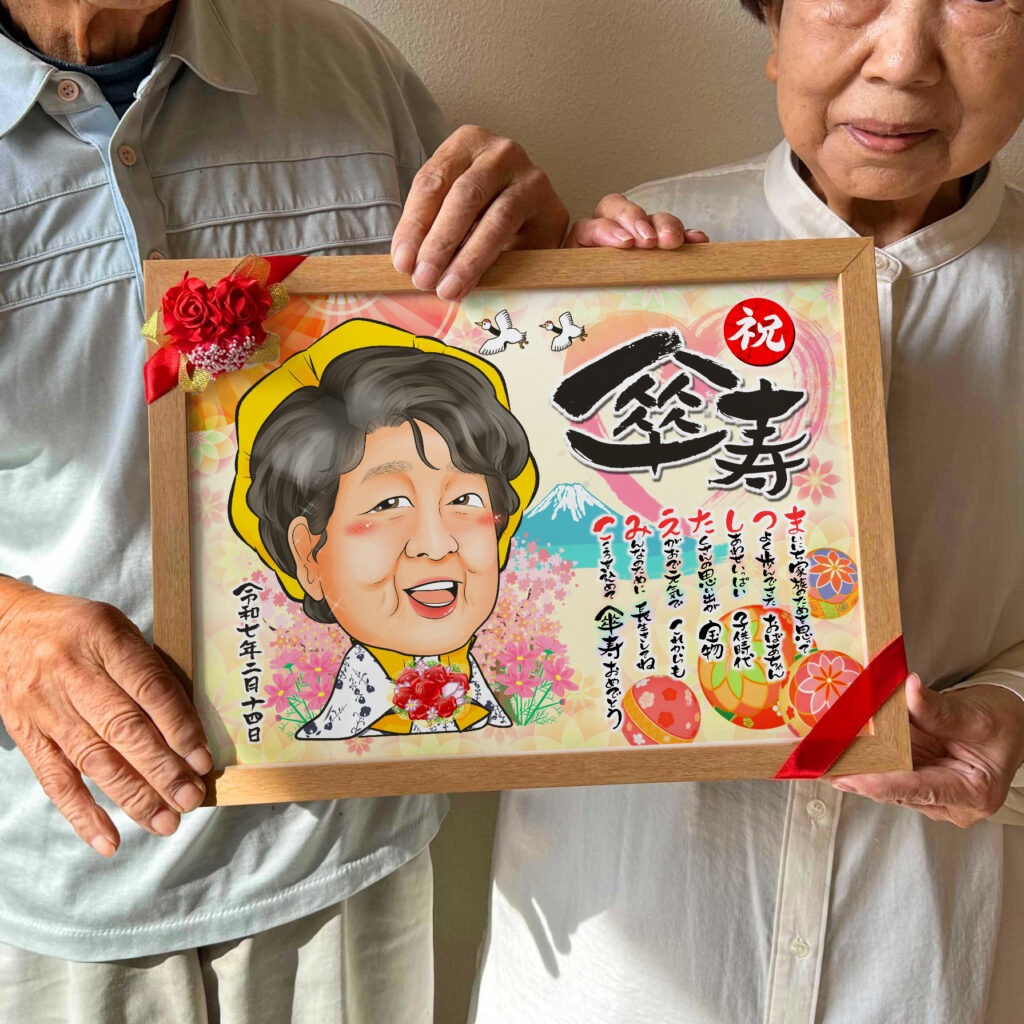 祝
傘寿
まいにち家族のためを思って
つよく歩んできた おばあちゃん
しあわせいっぱい 子供時代
たくさんの思い出が 宝物
えがおで元気で これからも
みんなのために 長生きしてね
こころを込めて 傘寿おめでとう
令和七年二月十四日